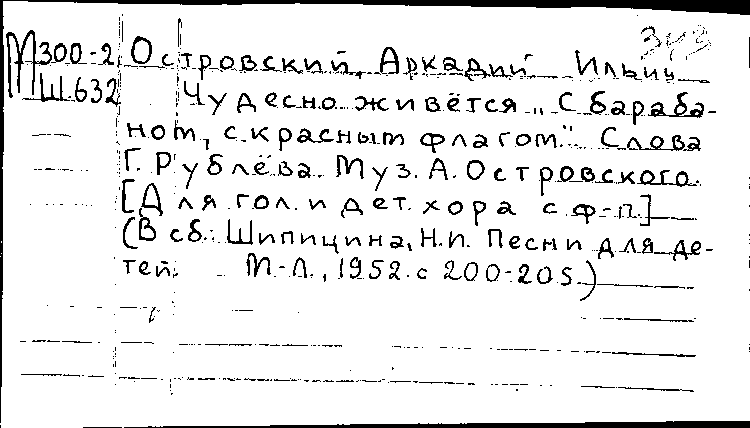 343
М300-2 Островский, Аркадий Ильич
Ш.632 Чудесно живётся „С бараба-
ном, с красным флагом." Слова
Г. Рублёва. Муз. А. Островского.
[Для гол. и дет. хора с ф-п.]
(В сб.: Шипицина, Н.И. Песни для де-
тей. М.-Л., 1952. с 200-205.)